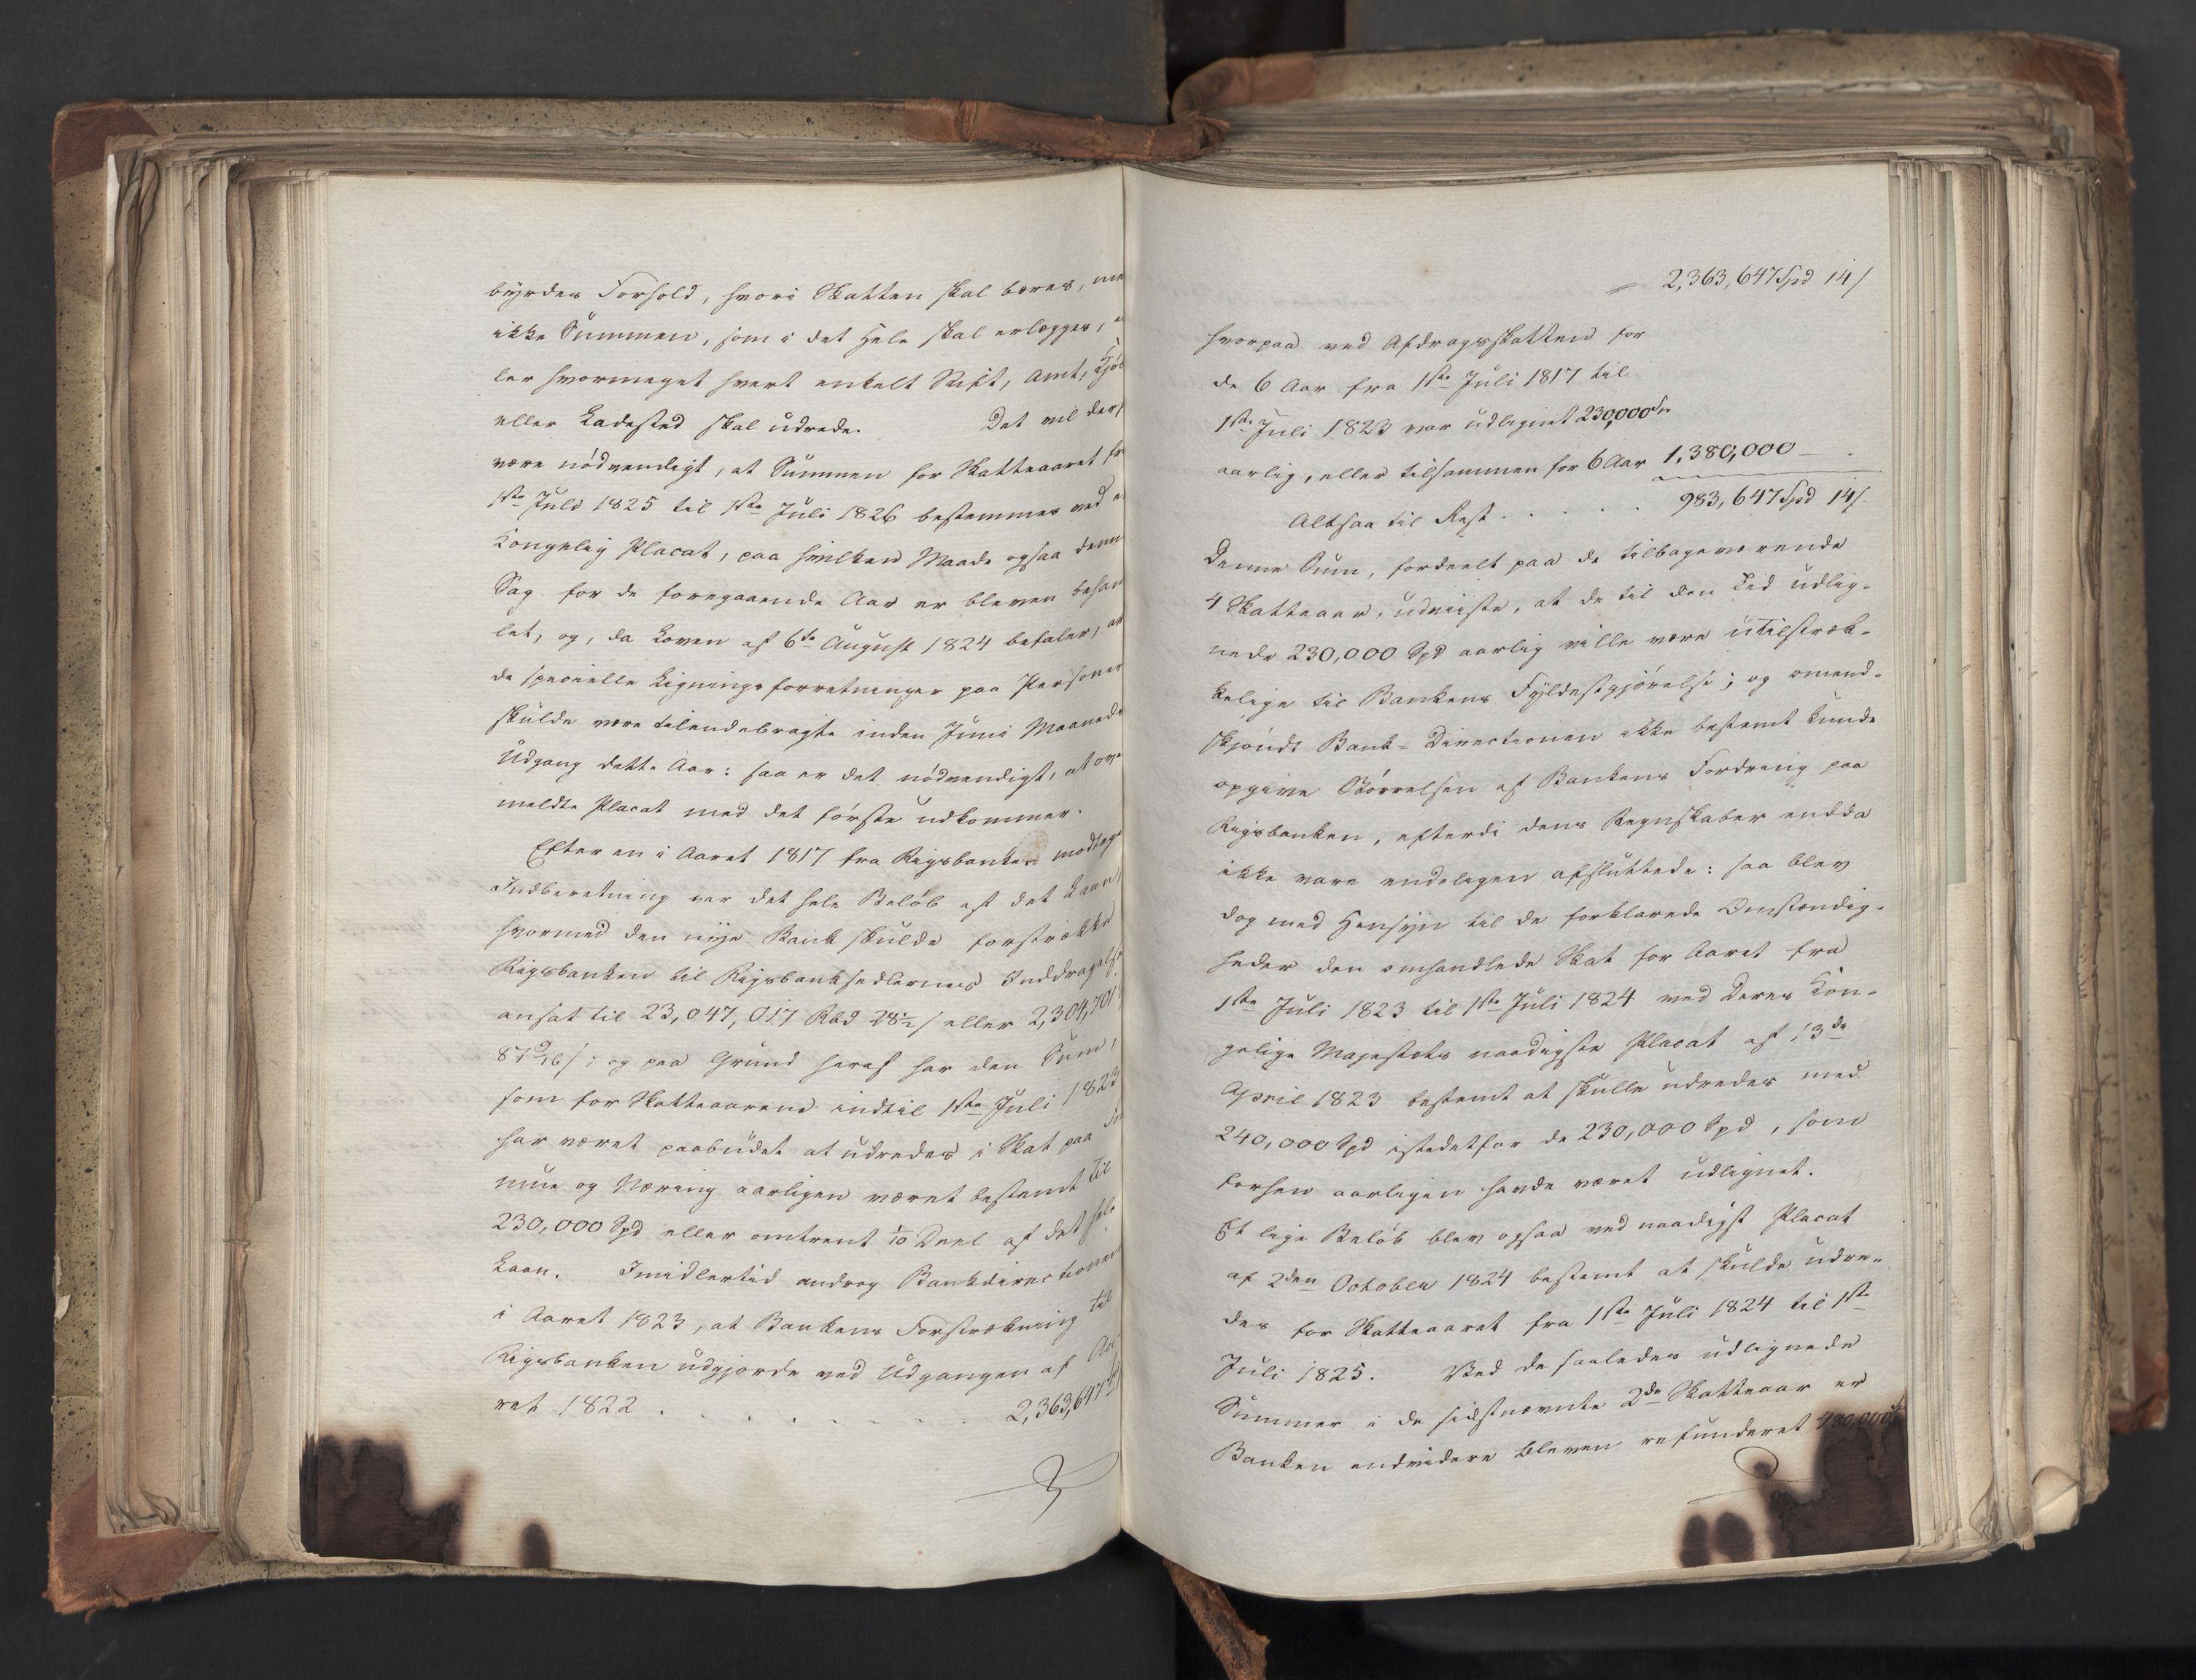 byrdes Forhold, hvori Skatten skal bæres, me
ikke Summen, som i det Hele skal erlægges, e
ler hvormeget hvert enkelt Stift, Amt, Kjøb
eller Ladested skal udrede. Det vil der
være nödvendigt, at Summen for Skatteaaret fr
1ste Juli 1825 til 1ste Juli 1826 bestemmes ved e
Kongelig Placat, paa hvilken Maade ogsaa denn
Sag for de foregaaende Aar er bleven behan
let, og, da Loven af 6te August 1824 befaler, at
de specielle Ligningsforretninger paa Personer
skulde være tilendebragte inden Juni Maaneds
Udgang dette Aar: saa er det nödvendigt, at ov
meldte Placat med det förste udkommer.
Efter en i Aaret 1817 fra Rigsbanken modtag
Indberetning var det hele Belöb af det Laan,
hvormed den nye Bank skulde forstrække
Rigsbanken til Rigsbanksedlernes Inddragelse
ansat til 23,047,017 Rbd 28½ s eller 2,304,701
87 9/16 s; og paa Grund heraf har den Sum,
som for Skatteaarene indtil 1ste Juli 1823
har været paabudet at udredes i Skat paa For
mue og Næring aarligen været bestemt til
230,000 Spd eller omtrent 1/10 Deel af det hele
Laan. Imidlertid androg Bankdirectionen
i Aaret 1823, at Bankens Forstrækning til
Rigsbanken udgjorde ved Udgangen af Aa
ret 1822 . . . . . . . . 2,363,647
2,363,647 Spd 14 s
hvorpaa ved Afdragsskatten for
de 6 Aar fra 1ste Juli 1817 til
1ste Juli 1823 var udlignet 230,000 Sp
aarlig, eller tilsammen for 6 Aar 1,380,000 — .
Altsaa til Rest . . . . . 983,647 Spd 14 s.
Denne Sum, fordeelt paa de tilbageværende
4 Skatteaar, udviiste, at de til den Tid udlig-
nede 230,000 Spd aarlig ville være utilstræk-
kelige til Bankens Fyldestgjörelse; og omend-
skjöndt Bank-Directionen ikke bestemt kunde
opgive Störrelsen af Bankens Fordring paa
Rigsbanken, efterdi dens Regnskaber endda
ikke vare endeligen afsluttede: saa blev
dog med Hensyn til de forklarede Omstændig-
heder den omhandlede Skat for Aaret fra
1ste Juli 1823 til 1ste Juli 1824 ved Deres Kon-
gelige Majestæts naadigste Placat af 13de
April 1823 bestemt at skulle udredes med
240,000 Spd istedetfor de 230,000 Spd, som
forhen aarligen havde været udlignet.
Et lige Belöb blev ogsaa ved naadigst Placat
af 2den October 1824 bestemt at skulde udre-
des for Skatteaaret fra 1ste Juli 1824 til 1ste
Juli 1825. Ved de saaledes udlignede
Summer i de sidstnævnte 2de Skatteaar er
Banken endvidere bleven refunderet 480,000 Sp